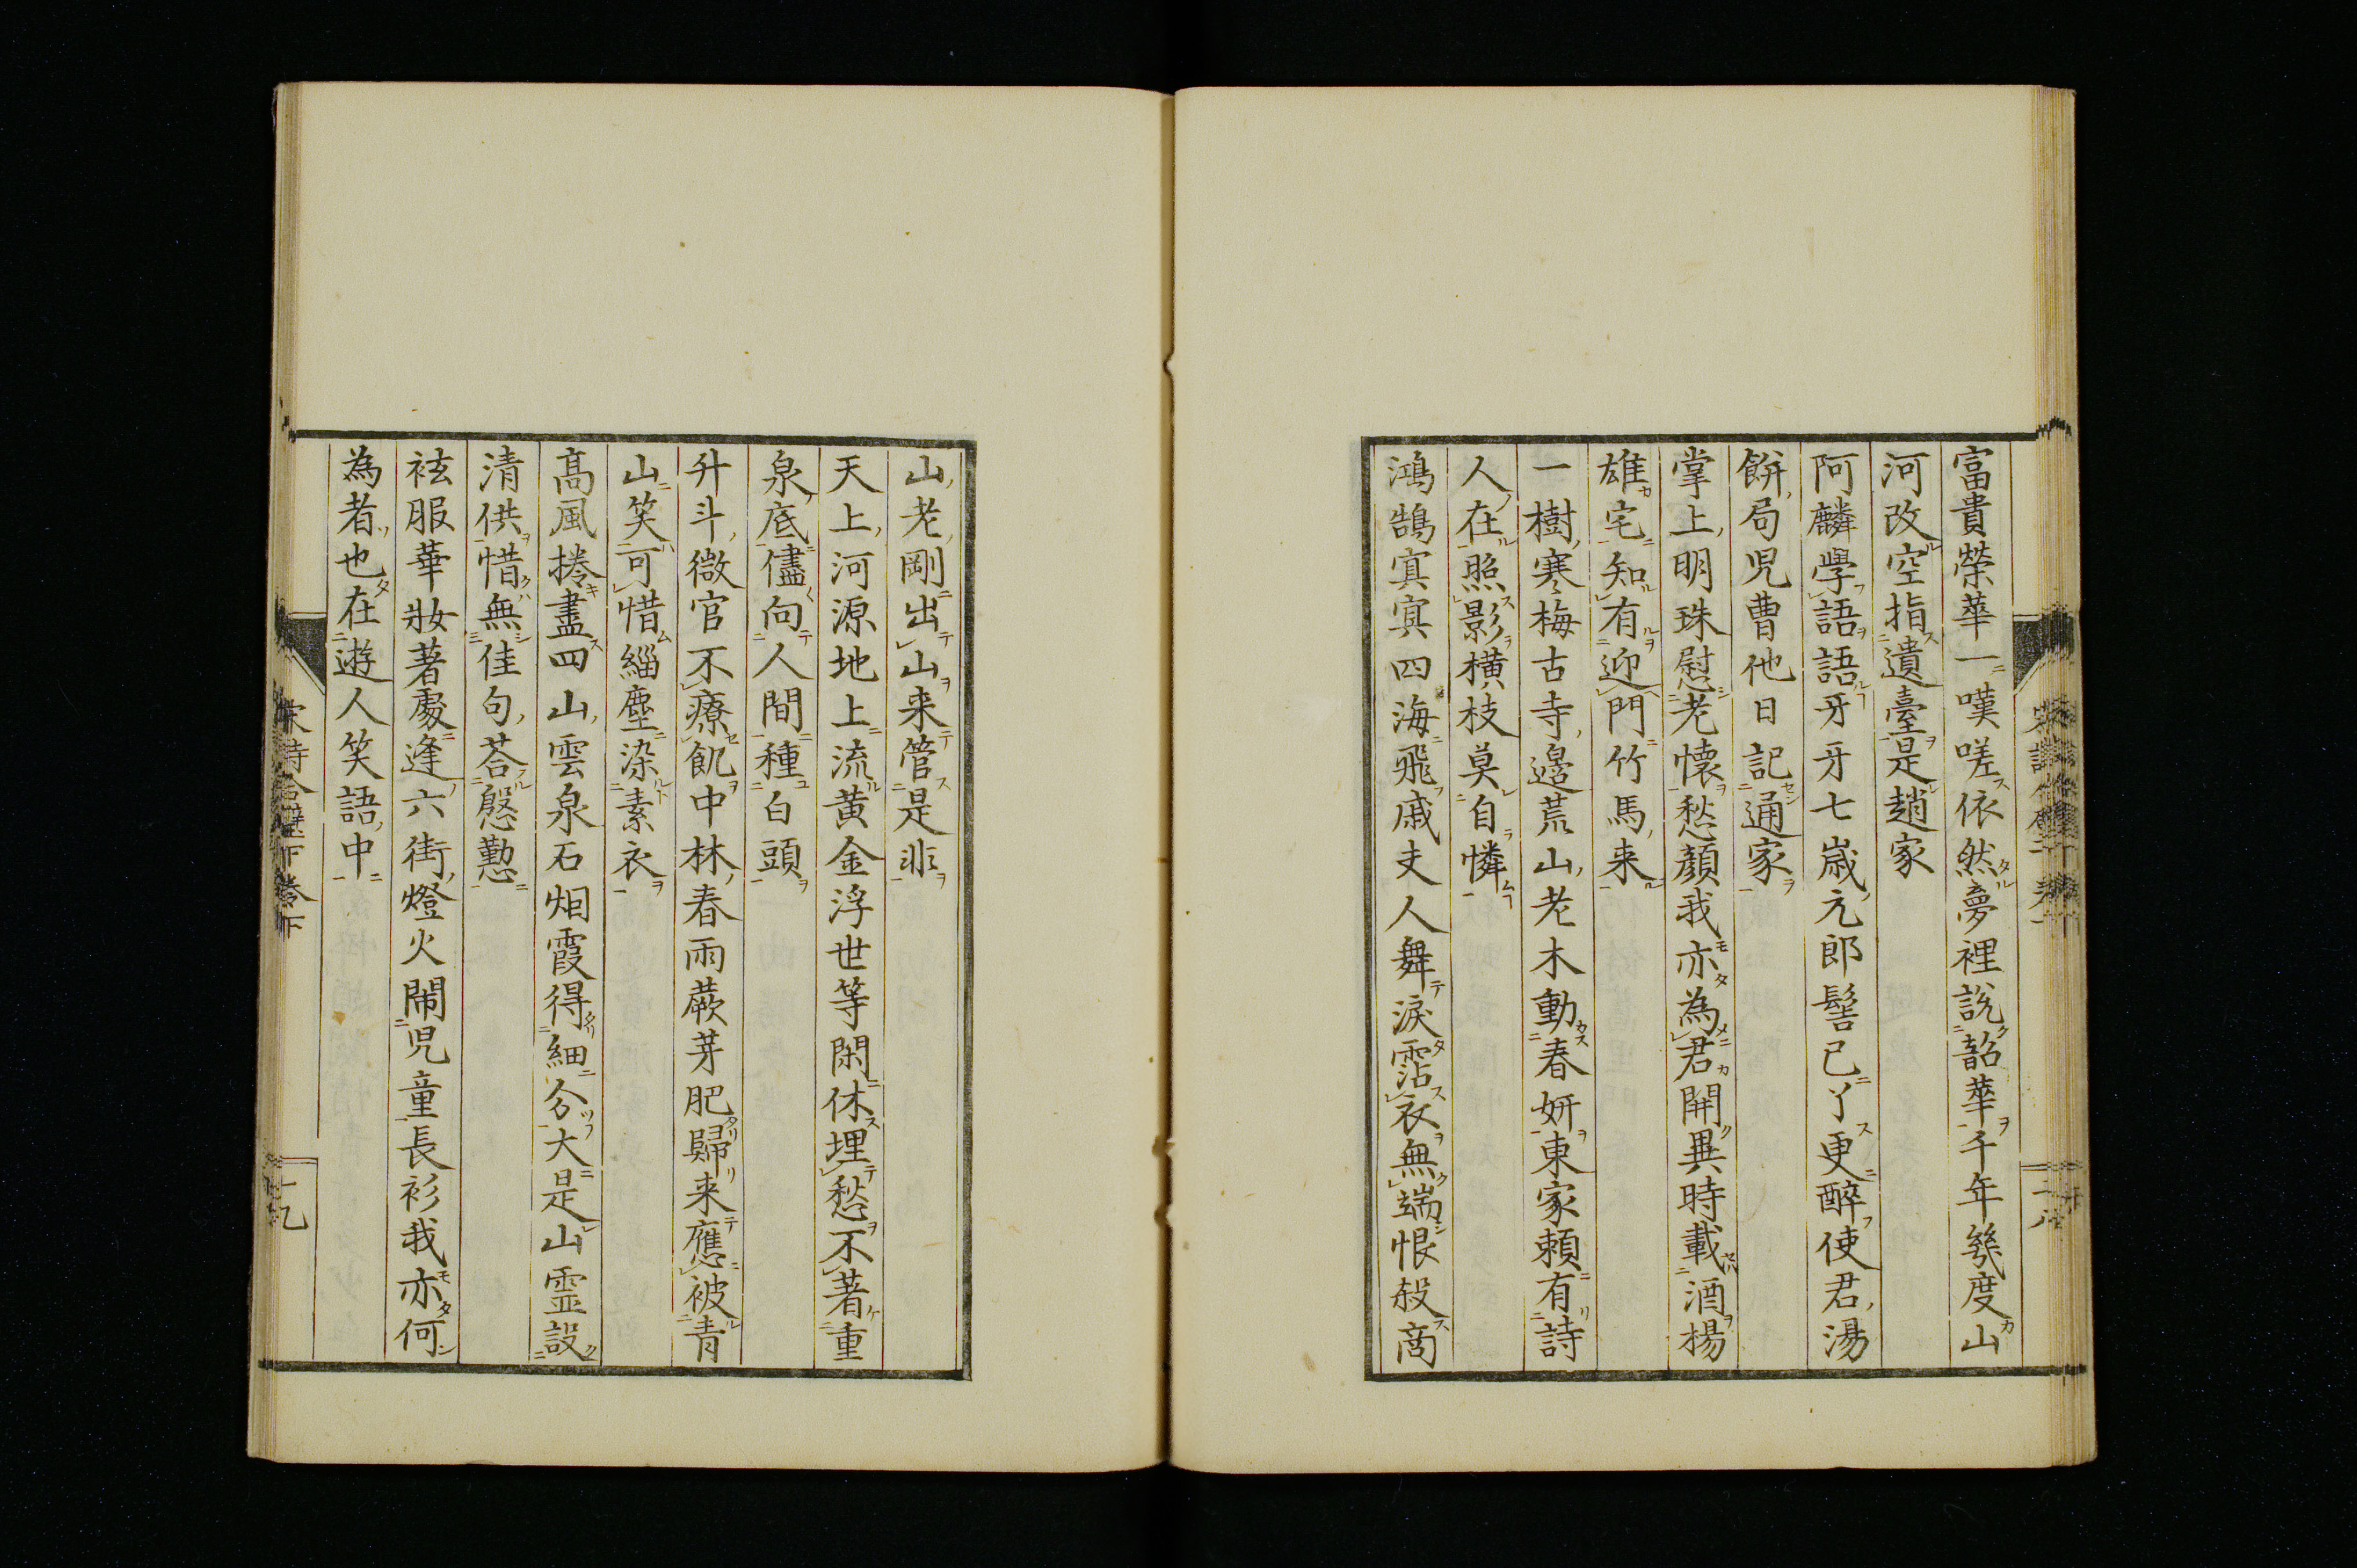 富貴榮華一嘆嗟依然夢裡說韶華千年幾度山
河改空指遺臺是趙家
阿麟學語語牙牙七歳元郎髻已丫更醉使君湯
餅局児曹他日記通家
掌上明珠慰老懐愁顔我亦為君開異時載酒楊
雄宅知有迎門竹馬来
一樹寒梅古寺邉荒山老木動春妍東家頼有詩
人在照影橫枝莫自憐
鴻鵠寘寘四海飛戚夫人舞淚霑衣無端恨殺商
山老剛出山来管是非
天上河源地上流黄金浮世等閑休埋愁不著重
泉底儘向人間種白頭
升斗微官不療飢中林春雨蕨芽肥歸来應被青
山笑可惜緇塵染素衣
髙風捲盡四山雲泉石烟霞得細分大是山霊設
清供惜無佳句荅慇懃
袨服華妝著處逢六街燈火閙児童長衫我亦何
為者也在遊人笑語中
宋詩合璧下卷下
十九